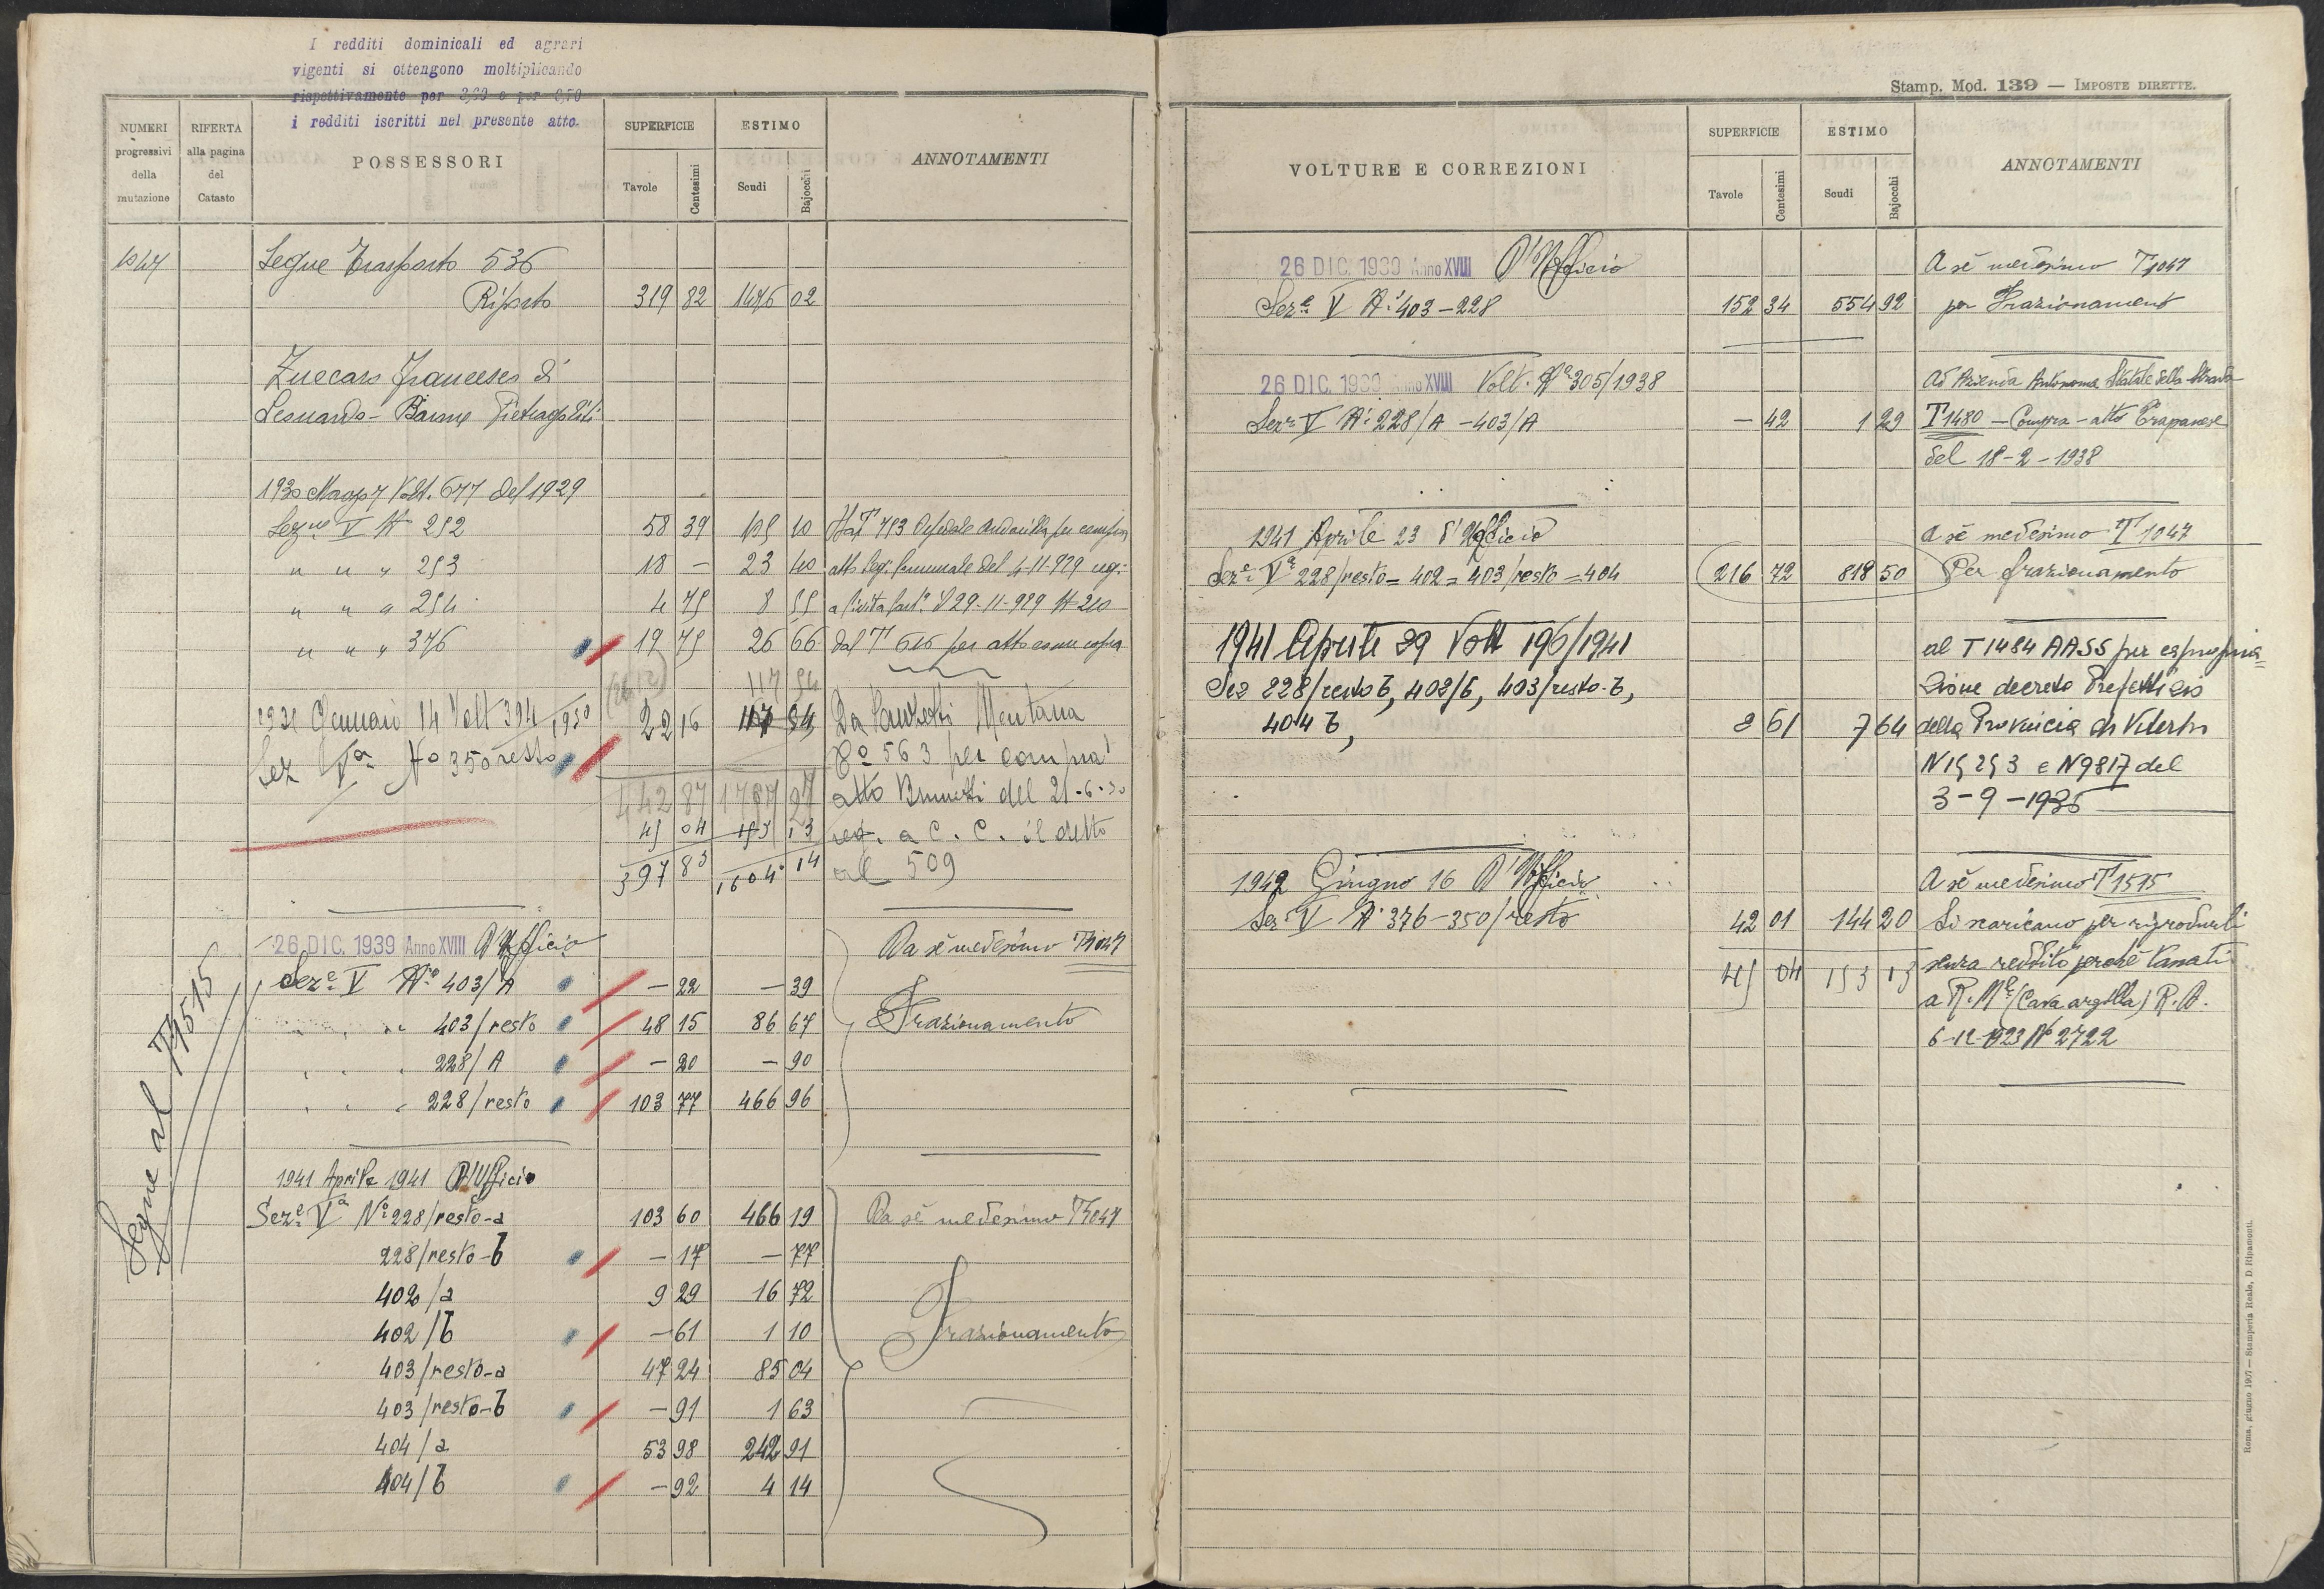 I redditi dominicali ed agrari
vigenti si ottengono moltiplicando
rispettivamente per 3,60 e per 0,70
i redditi iscritti nel presente atto.
NUMERI progressivi della mutazione
RIFERTA alla pagina del Catasto
POSSESSORI
SUPERFICIE
Tavole
Centesimi
ESTIMO
Scudi
Bajocchi
ANNOTAMENTI
1047 Segue Trasporto 536
Riporto 319 82 1476 02
Francesco di
Leonardo
1930 Magg 7 Volt. 677 del 1929
Sezne V N 252 58 39 10
" " " 253 18 — 23 40
" " " 254 4 75 8 55
" " " 376 19 75 26 66 dal T 616 per atto come sopra
117 54
1931 Gennaio 14 Volt 394/1930 22 16 117 54
Sez Va No 350 resto 563 per compra
442 87 1757 27 atto Brunetti del 21-6-30
45 04 153 13 reg. a C. C. il detto
397 83 1604 14 al 509
26 DIC. 1939 Anno XVIII D'Ufficio Da sè medesimo T1047
Seze V Ni 403/A — 22 — 39
403/resto 48 15 86 67 Frazionamento
228/A — 20 — 90
228/resto 103 77 466 96
Segue al T1515
1941 Aprile 1941 D'Ufficio
Seze Va Ni 228/resto-a 103 60 466 19 Da sè medesimo T1047
228/resto-b — 17 — 77
402/a 9 29 16 72
402/b — 61 1 10 Frazionamento
403/resto-a 47 24 85 04
403/resto-b — 91 1 63
404/a 53 98 242 91
404/b — 92 4 14
Stamp. Mod. 139 — IMPOSTE DIRETTE.
VOLTURE E CORREZIONI
SUPERFICIE
Tavole
Centesimi
ESTIMO
Scudi
Bajocchi
ANNOTAMENTI
26 DIC. 1939 Anno XVIII D'Ufficio A sè medesimo T1047
Seze V Ni 403-228 152 34 554 92 per Frazionamento
26 DIC. 1939 Anno XVIII Volt. No 305/1938 Ad Azienda Autonoma Statale della Strada
Seze V Ni 228/A - 403/A — 42 1 29 T1480 - Compra - atto Trapanese
del 18-2-1938
1941 Aprile 23 d'Ufficio A sè medesimo T1047
Seze Va 228/resto = 402 = 403/resto = 404 216 72 818 50 Per frazionamento
1941 Aprile 29 Volt 196/1941 al T1484 AASS per espropria=
Sez 228/resto b, 402/b, 403/resto-b, zione decreto Prefettizio
404 b, 2 61 7 64 della Provincia di Viterbo
N15253 e N9817 del
3-9-1935
1942 Giugno 16 D'Ufficio A sè medesimo T1515
Sez V Ni 376-350/resto 42 01 144 20 Si scaricano per riprodurli
45 04 153 13 senza reddito perchè
a R. Me (Cava argilla) R. D.
6-12-1923 No 2722
Roma, giugno 1937 — Stamperia Reale, D. Ripamonti.